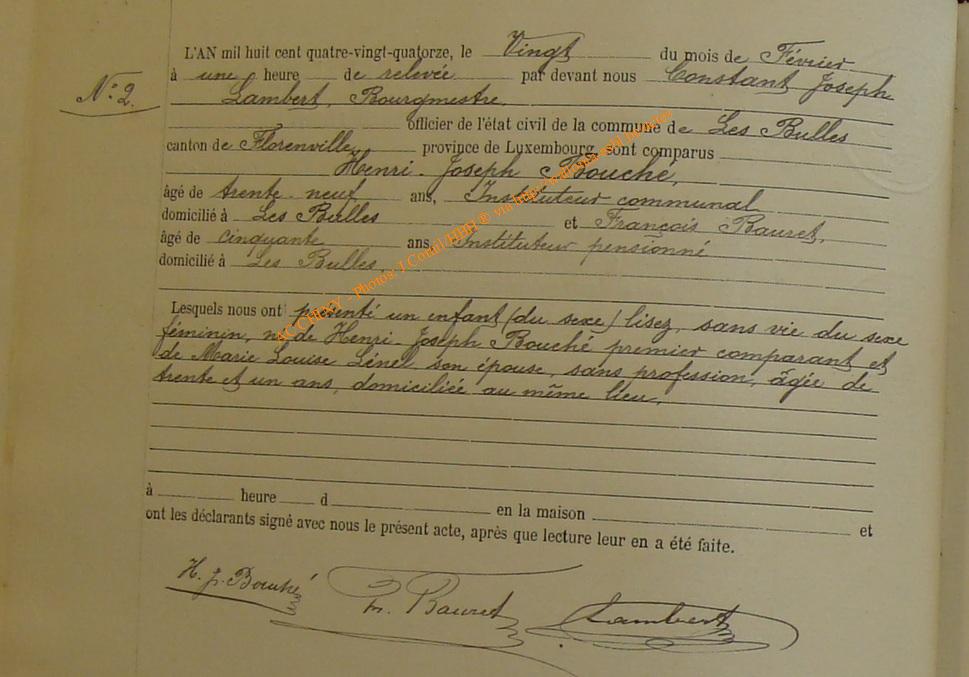 L'AN mil huit cent quatre-vingt-quatorze, le Vingt du mois de Février
à une heure de relevée par devant nous Constant Joseph
N° 2.
Lambert, Bourgmestre
officier de l'état civil de la commune de Les Bulles
canton de Florenville province de Luxembourg, sont comparus
Henri-Joseph Bouché,
âgé de trente-neuf ans, Instituteur communal
domicilié à Les Bulles et François Bauret,
âgé de cinquante ans, Instituteur pensionné
domicilié à Les Bulles
Lesquels nous ont présenté un enfant (du sexe) lisez, sans vie du sexe
féminin, né de Henri-Joseph Bouché premier comparant et
de Marie Louise Lénel son épouse, sans profession, âgée de
trente et un ans, domiciliée au même lieu.
à heure d en la maison et
ont les déclarants signé avec nous le présent acte, après que lecture leur en a été faite.
H. J. Bouché Fr. Bauret Lambert
- Photos: J.Cornil/HBR® via